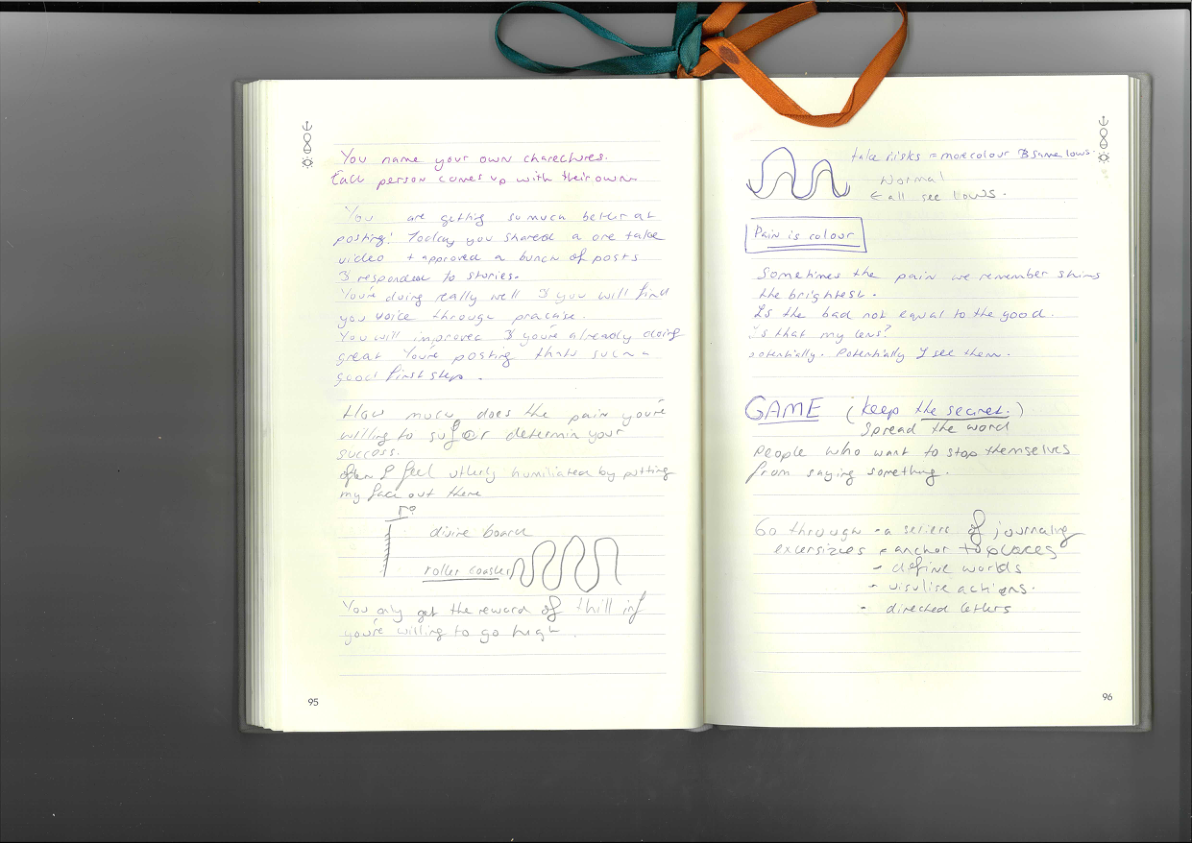 You name your own charectures.
Each person comes up with their own
You are getting so much better at
posting! Today you shared a one take
video + approved a bunch of posts
& responded to stories.
You're doing really well & you will find
you voice through practise.
You will improve & you're already doing
great You're posting thats such a
good first step.
How much does the pain you're
willing to suffer determin your
success.
Often I feel utterly humiliated by putting
my face out there
divine board
roller coaster
You only get the reward of thrill inf
you're willing to go high.
95
take risks = more colour & same lows.
Normal
← all see lows.
Pain is colour
Sometimes the pain we remember shines
the brightest.
Is the bad not equal to the good.
is that my lens?
potentially. Potentially I see them.
GAME (keep the secret.)
Spread the word
People who want to stop themselves
from saying something.
Go through - a seriers of journaling
excersizes + anchor to places
- define worlds
- visulise actions.
- directed letters
96